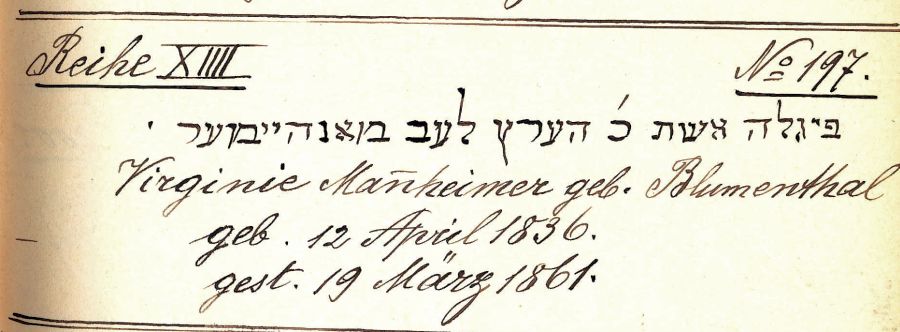 Reihe XIIII
No 197.
פיגלה אשת כ׳ הערץ לעב מאנהיימער
Virginie Man̄heimer geb. Blumenthal
geb. 12 April 1836.
gest. 19 März 1861.